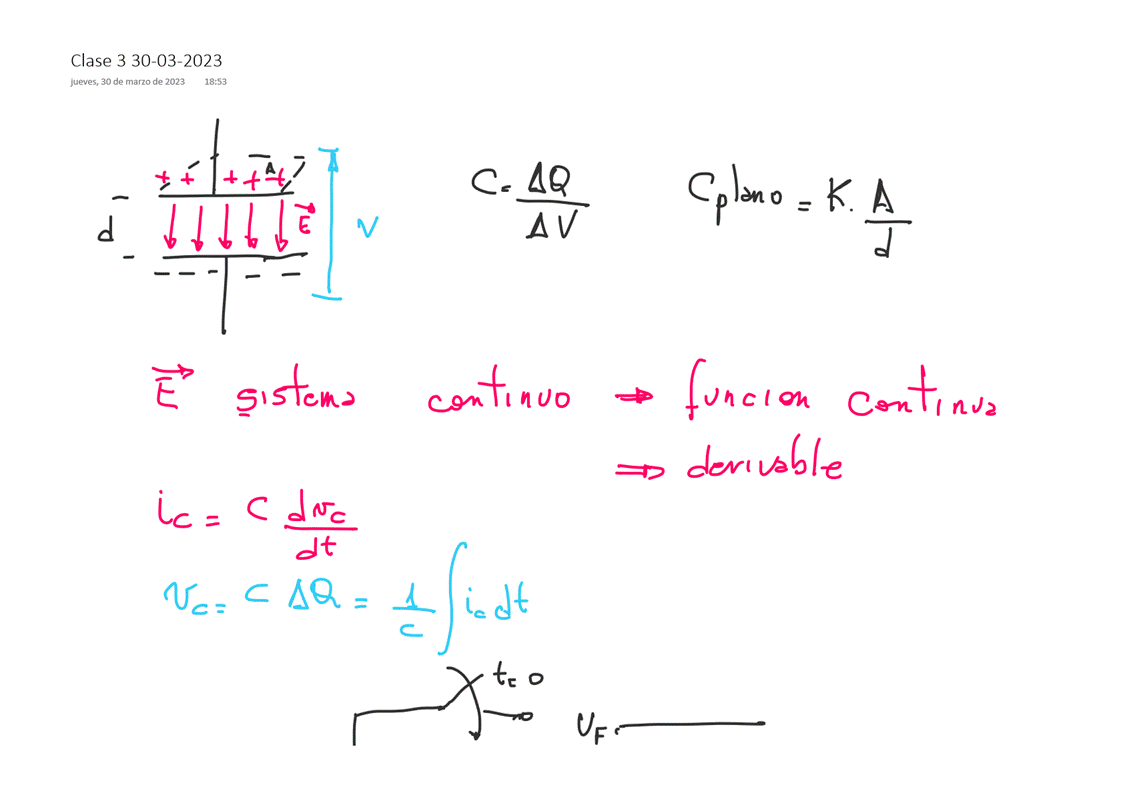 Clase 3 30-03-2023
jueves, 30 de marzo de 2023 18:53
+ + + + + A
d E V
C = ΔQ / ΔV
Cplano = K. A / d
E sistema continuo ⇒ funcion continua
⇒ derivable
ic = C dvc / dt
vc = C ΔQ = 1/C ∫ ic dt
t = 0
UF